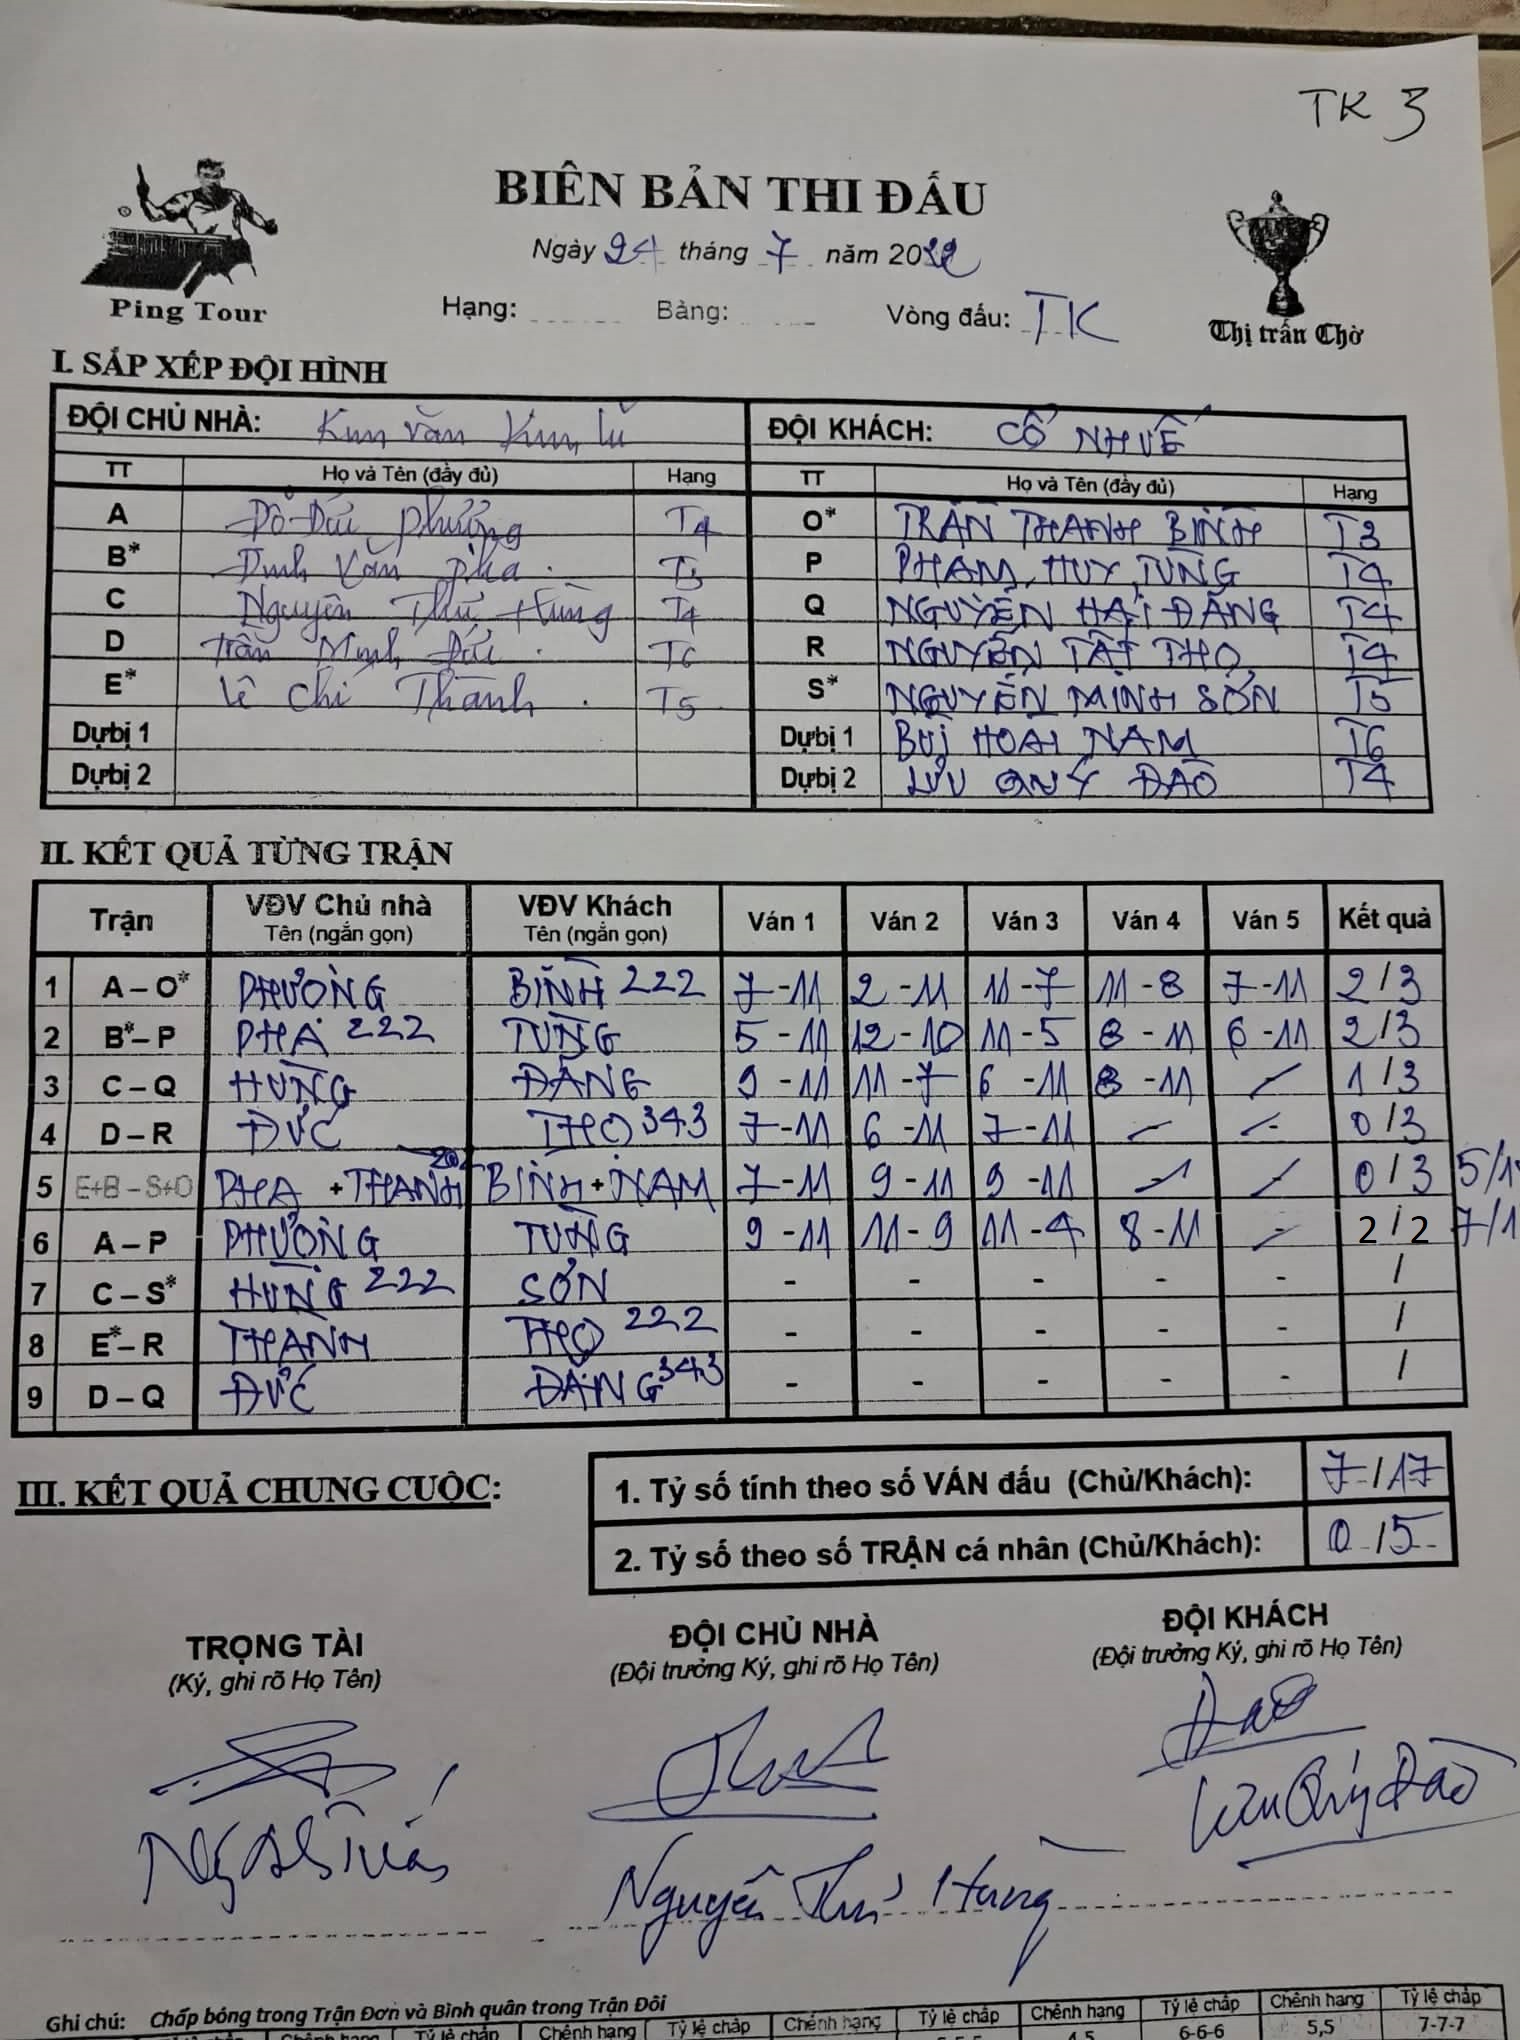 TK 3
BIÊN BẢN THI ĐẤU
Ngày 24 tháng 7 năm 2022
Ping Tour
Hạng: Bảng: Vòng đấu: TK
Thị trấn Chờ
I. SẮP XẾP ĐỘI HÌNH
ĐỘI CHỦ NHÀ: Kim văn Kim lũ ĐỘI KHÁCH: CỔ NHUẾ
TT Họ và Tên (đầy đủ) Hạng TT Họ và Tên (đầy đủ) Hạng
A Đỗ Đức Phương T4 O* TRẦN THANH BÌNH T3
B* Đinh Văn pha . T3 P PHẠM HUY TÙNG T4
C Nguyễn Thế Hùng T4 Q NGUYỄN HẢI ĐĂNG T4
D Trần Minh Đức . T6 R NGUYỄN TẤT THỌ T4
E* Lê Chí Thanh . T5 S* NGUYỄN MINH SƠN T5
Dự bị 1 Dự bị 1 BÙI HOÀI NAM T6
Dự bị 2 Dự bị 2 LƯU QUÝ ĐẠO T4
II. KẾT QUẢ TỪNG TRẬN
Trận VĐV Chủ nhà Tên (ngắn gọn) VĐV Khách Tên (ngắn gọn) Ván 1 Ván 2 Ván 3 Ván 4 Ván 5 Kết quả
1 A – O* PHƯƠNG BÌNH 222 7 - 11 2 - 11 11 - 7 11 - 8 7 - 11 2 / 3
2 B* – P PHA 222 TÙNG 5 - 11 12 - 10 11 - 5 8 - 11 6 - 11 2 / 3
3 C – Q HÙNG ĐĂNG 9 - 11 11 - 7 6 - 11 8 - 11 - 1 / 3
4 D – R ĐỨC THỌ 343 7 - 11 6 - 11 7 - 11 - - 0 / 3
5 E+B – S+O PHA + THANH BÌNH + NAM 7 - 11 9 - 11 9 - 11 - - 0 / 3
6 A – P PHƯƠNG TÙNG 9 - 11 11 - 9 11 - 4 8 - 11 - 2 / 2
7 C – S* HÙNG 222 SƠN - - - - - /
8 E* – R THANH THỌ 222 - - - - - /
9 D – Q ĐỨC ĐĂNG 343 - - - - - /
III. KẾT QUẢ CHUNG CUỘC:
1. Tỷ số tính theo số VÁN đấu (Chủ/Khách): 7 / 17
2. Tỷ số theo số TRẬN cá nhân (Chủ/Khách): 0 / 5
TRỌNG TÀI ĐỘI CHỦ NHÀ ĐỘI KHÁCH
(Ký, ghi rõ Họ Tên) (Đội trưởng Ký, ghi rõ Họ Tên) (Đội trưởng Ký, ghi rõ Họ Tên)
Lưu Quý Đạo
Nguyễn Thế Hùng
Ghi chú: Chấp bóng trong Trận Đơn và Bình quân trong Trận Đôi
Chênh hạng Tỷ lệ chấp Chênh hạng Tỷ lệ chấp Chênh hạng Tỷ lệ chấp Chênh hạng Tỷ lệ chấp
4,5 6-6-6 5,5 7-7-7